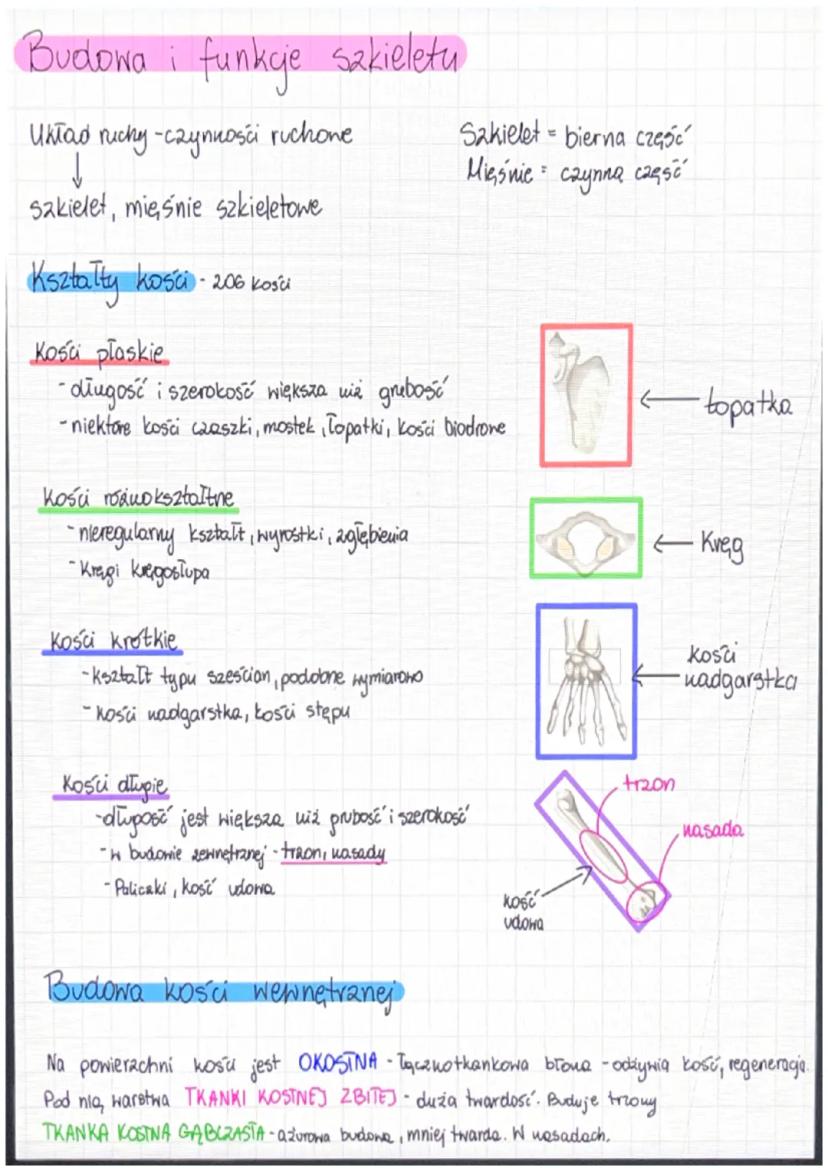 Budowa i funkcje szkieletu
Układ ruchy - czynności ruchone
szkielet, mięśnie szkieletowe
Szkielet = bierna część
Mięśnie = czynną część
Kształty kości - 206 kości
Kości płaskie
- długość i szerokość większa niż grubość
- niektóre kości czaszki, mostek, łopatki, kości biodrowe
łopatka
Kości różnokształtne
- nieregularny kształt, wyrostki, zgłębienia
- Kręgi kręgosłupa
Kręg
Kości krótkie
- kształt typu sześcian, podobne wymiarowo
- kości nadgarstka, kości stępu
kości
nadgarstka
Kości długie
- długość jest większa niż grubość i szerokość
- w budowie zewnętrznej - trzon, nasady
- Paliczki, kość udowa
trzon
nasada
kość
udowa
Budowa kości wewnętrznej
Na powierzchni kości jest OKOSTNA - łącznotkankowa błona - odżywia kość, regeneracja.
Pod nią, warstwa TKANKI KOSTNEJ ZBITEJ - duża twardość. Buduje trzony
TKANKA KOSTNA GĄBCZASTA - ażurowa budowa, mniej twarda. W nasadach.